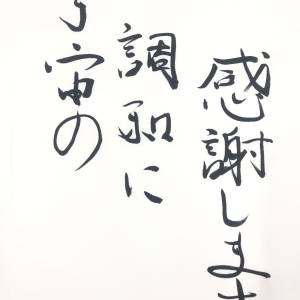 宇宙の
調和に
感謝します